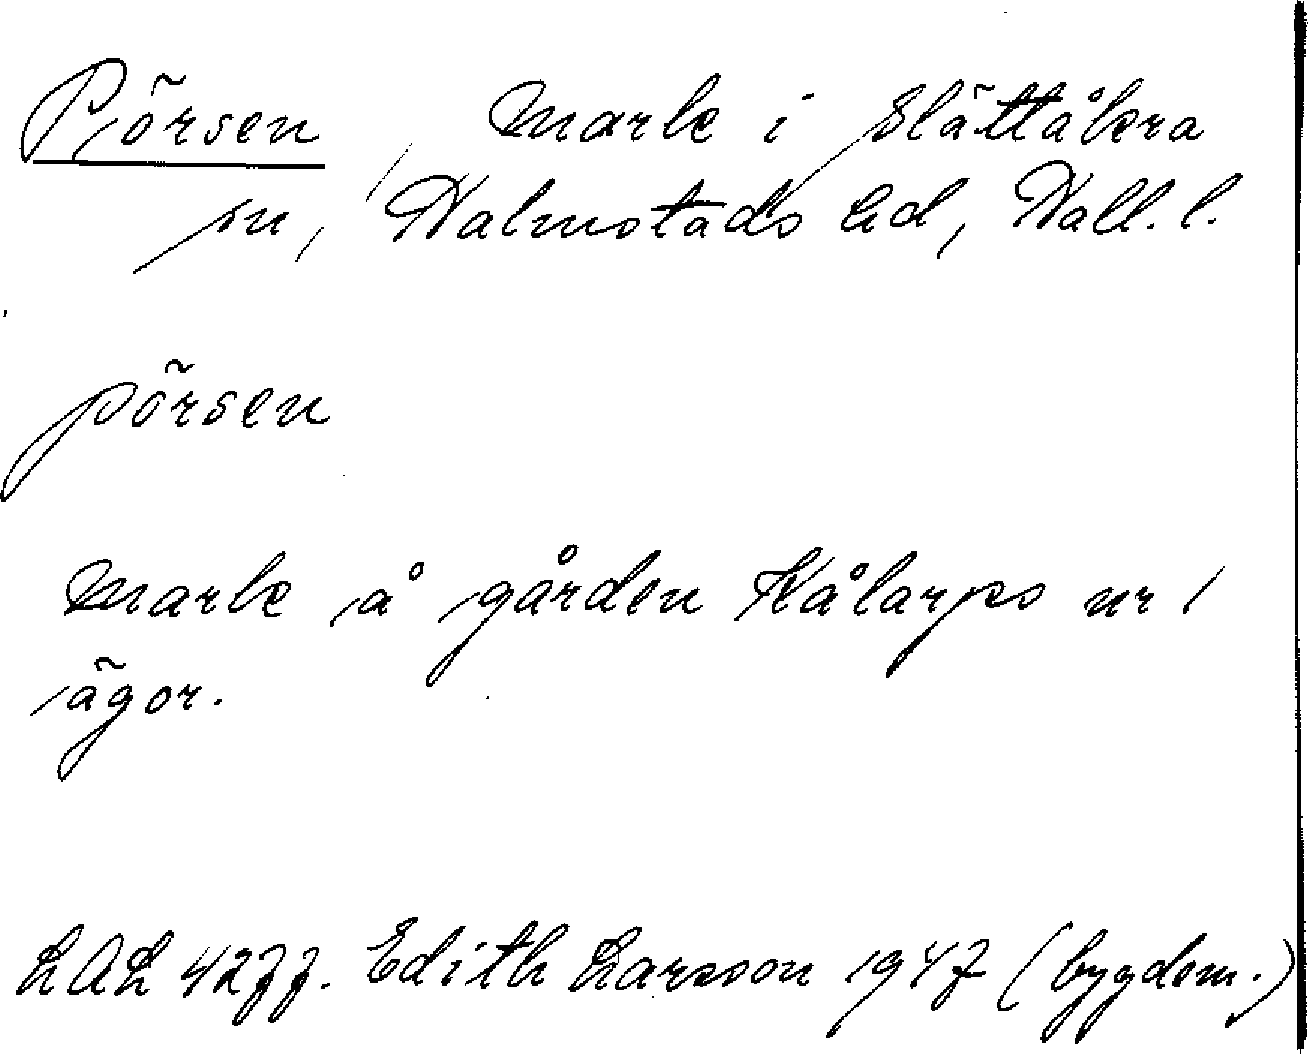 Pörsen, mark i Slättåkra
sn, Halmstads hd, Hall. l.
pörsen
mark å gården Kålarps nr 1
ägor.
LAL 4277. Edith Larsson 1947 (bygdem.)